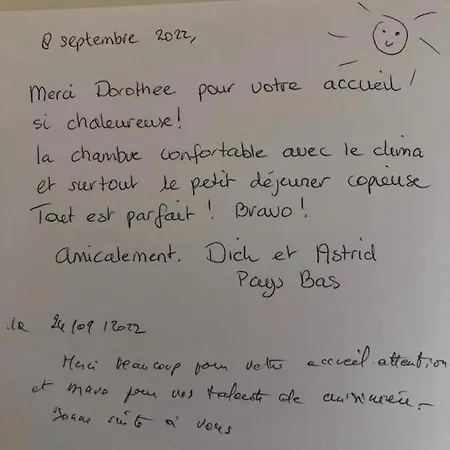 8 septembre 2022,
Merci Dorothee pour votre accueil
si chaleureuse!
la chambre confortable avec le clima
et surtout le petit déjeuner copieuse
Tout est parfait! Bravo!
Amicalement. Dick et Astrid
Pays Bas
le 24/09/2022
Merci beaucoup pour votre accueil attention
et bravo pour vos talents de cuisinière.
Bonne suite à vous